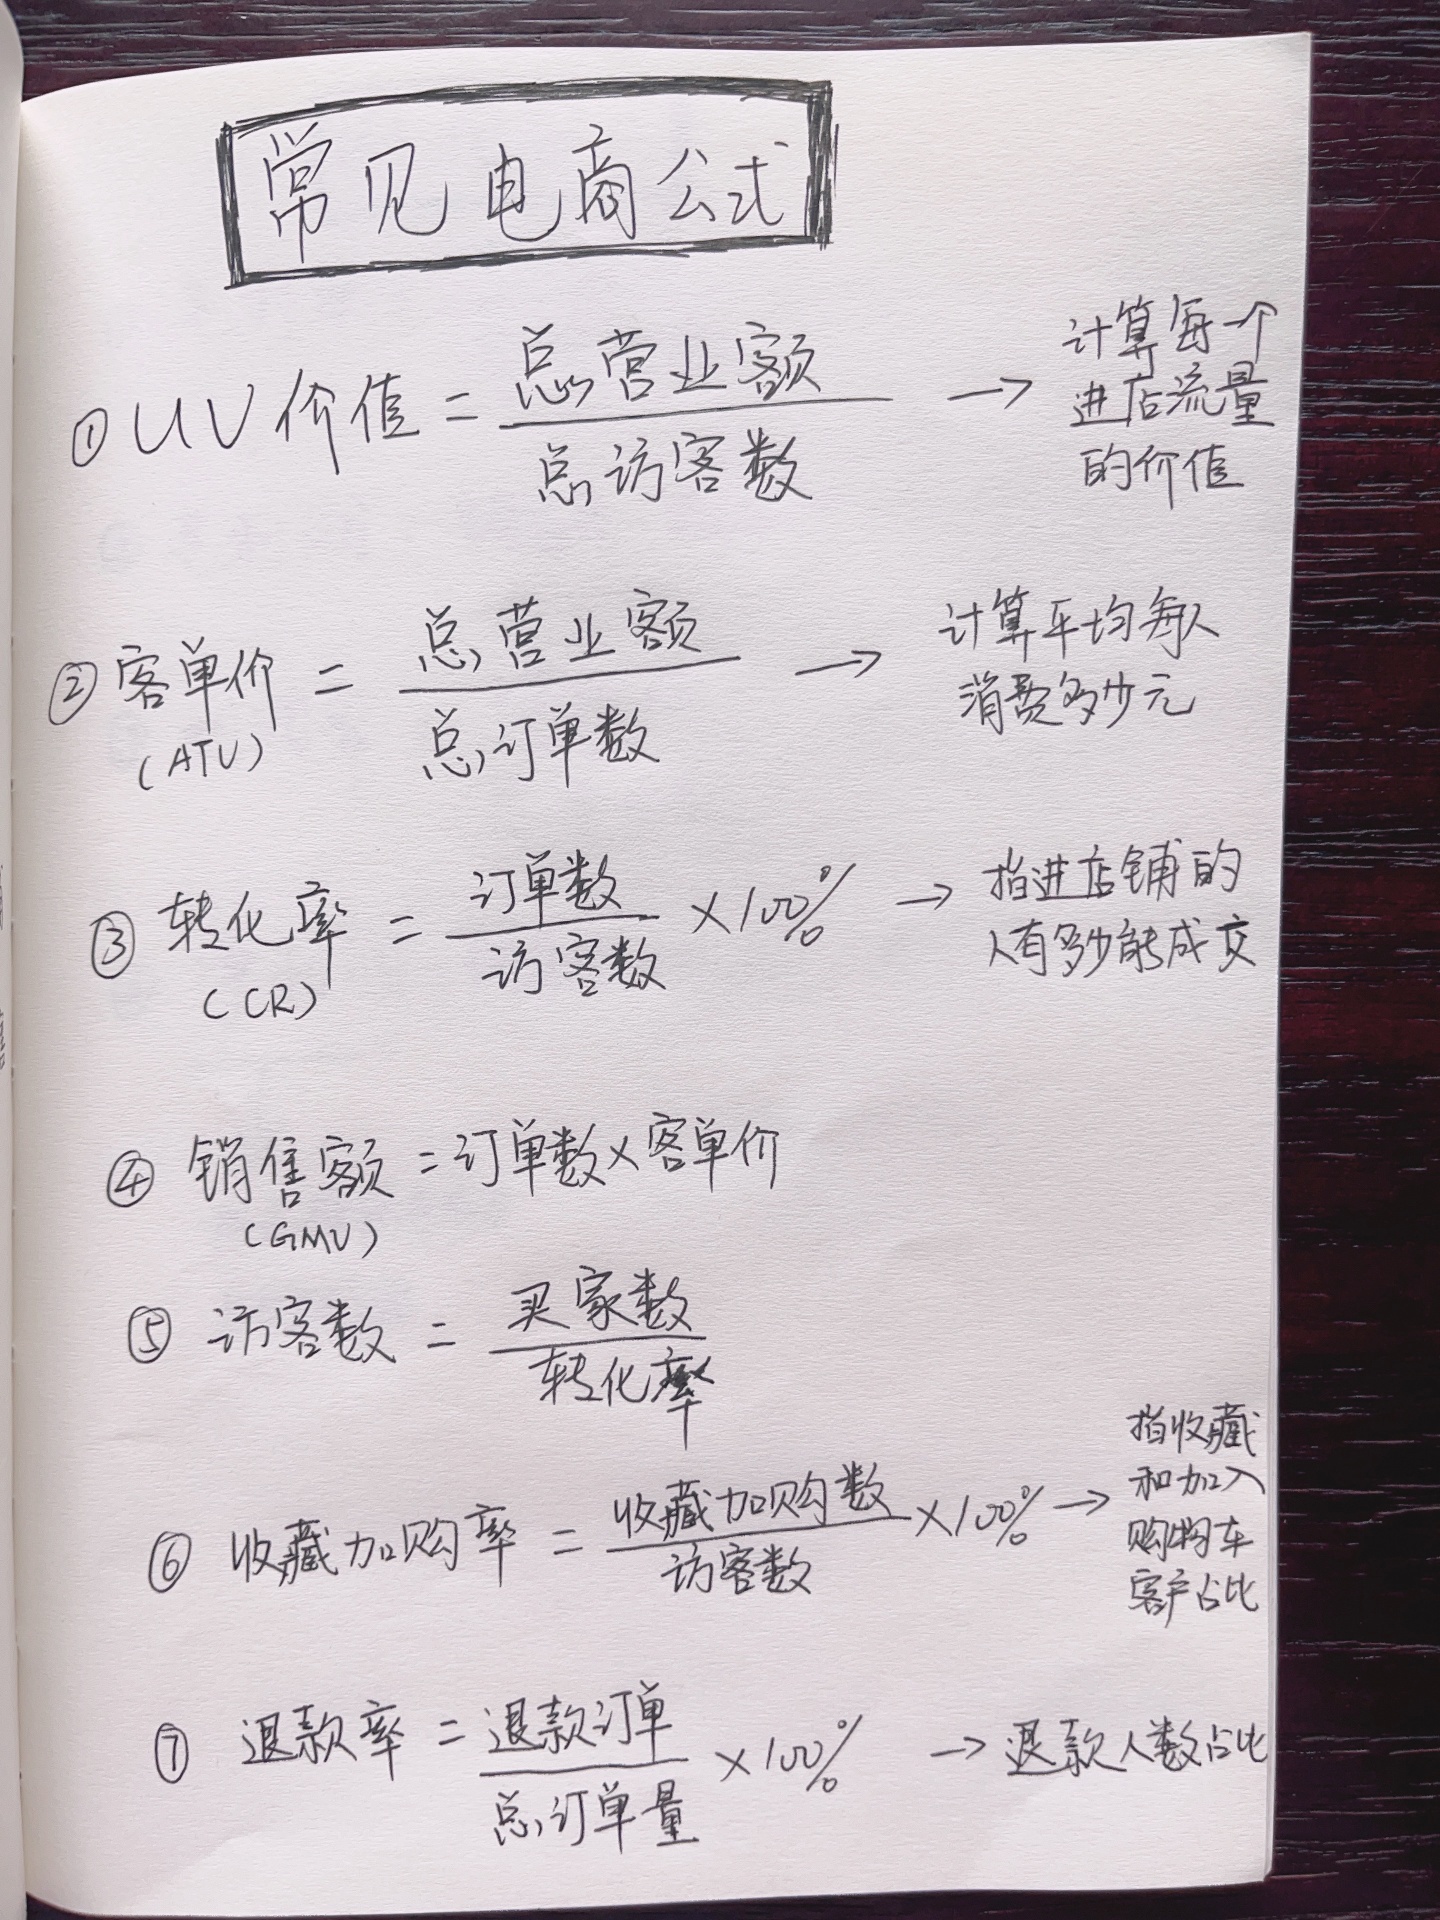 常见电商公式
①UV价值 = 总营业额 / 总访客数 → 计算每一个
进店流量
的价值
②客单价 = 总营业额 / 总订单数 → 计算平均每人
消费多少元
(ATU)
③转化率 = 订单数 / 访客数 ×100% → 指进店铺的
人有多少能成交
(CR)
④销售额 = 订单数×客单价
(GMV)
⑤访客数 = 买家数 / 转化率
⑥收藏加购率 = 收藏加购数 / 访客数 ×100% → 指收藏
和加入
购物车
客户占比
⑦退款率 = 退款订单 / 总订单量 ×100% → 退款人数占比